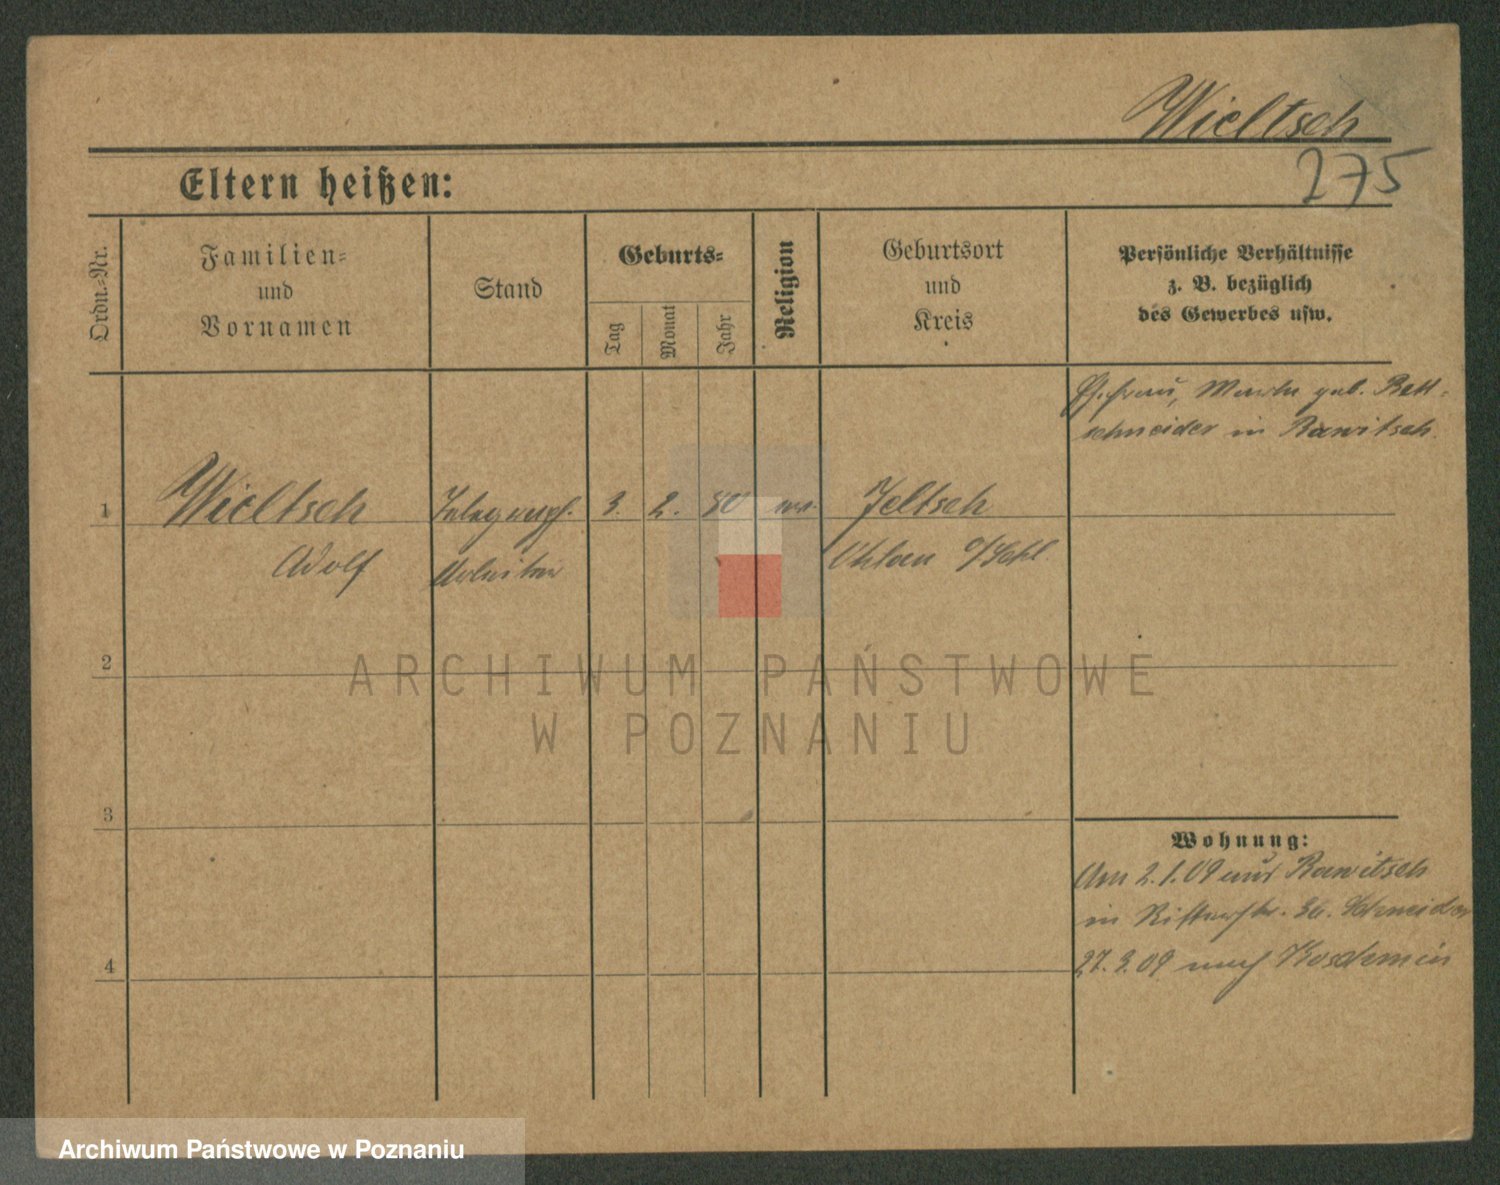 Wieltsch
275
Eltern heißen:
Ordn.-Nr.
Familien-
und
Vornamen
Stand
Geburts-
Tag
Monat
Jahr
Religion
Geburtsort
und
Kreis
Persönliche Verhältnisse
z. B. bezüglich
des Gewerbes usw.
Ehefrau, geb. Brett-
schneider in Rawitsch.
1
Wieltsch
Telegraph.
3. 2. 80
Jeltsch
Adolf
Arbeiter
Ohlau
2
ARCHIWUM PAŃSTWOWE
W POZNANIU
3
Wohnung:
Am 2.1.09 aus Rawitsch
in Schneider
4
27.3.09 nach Koschmin
Archiwum Państwowe w Poznaniu